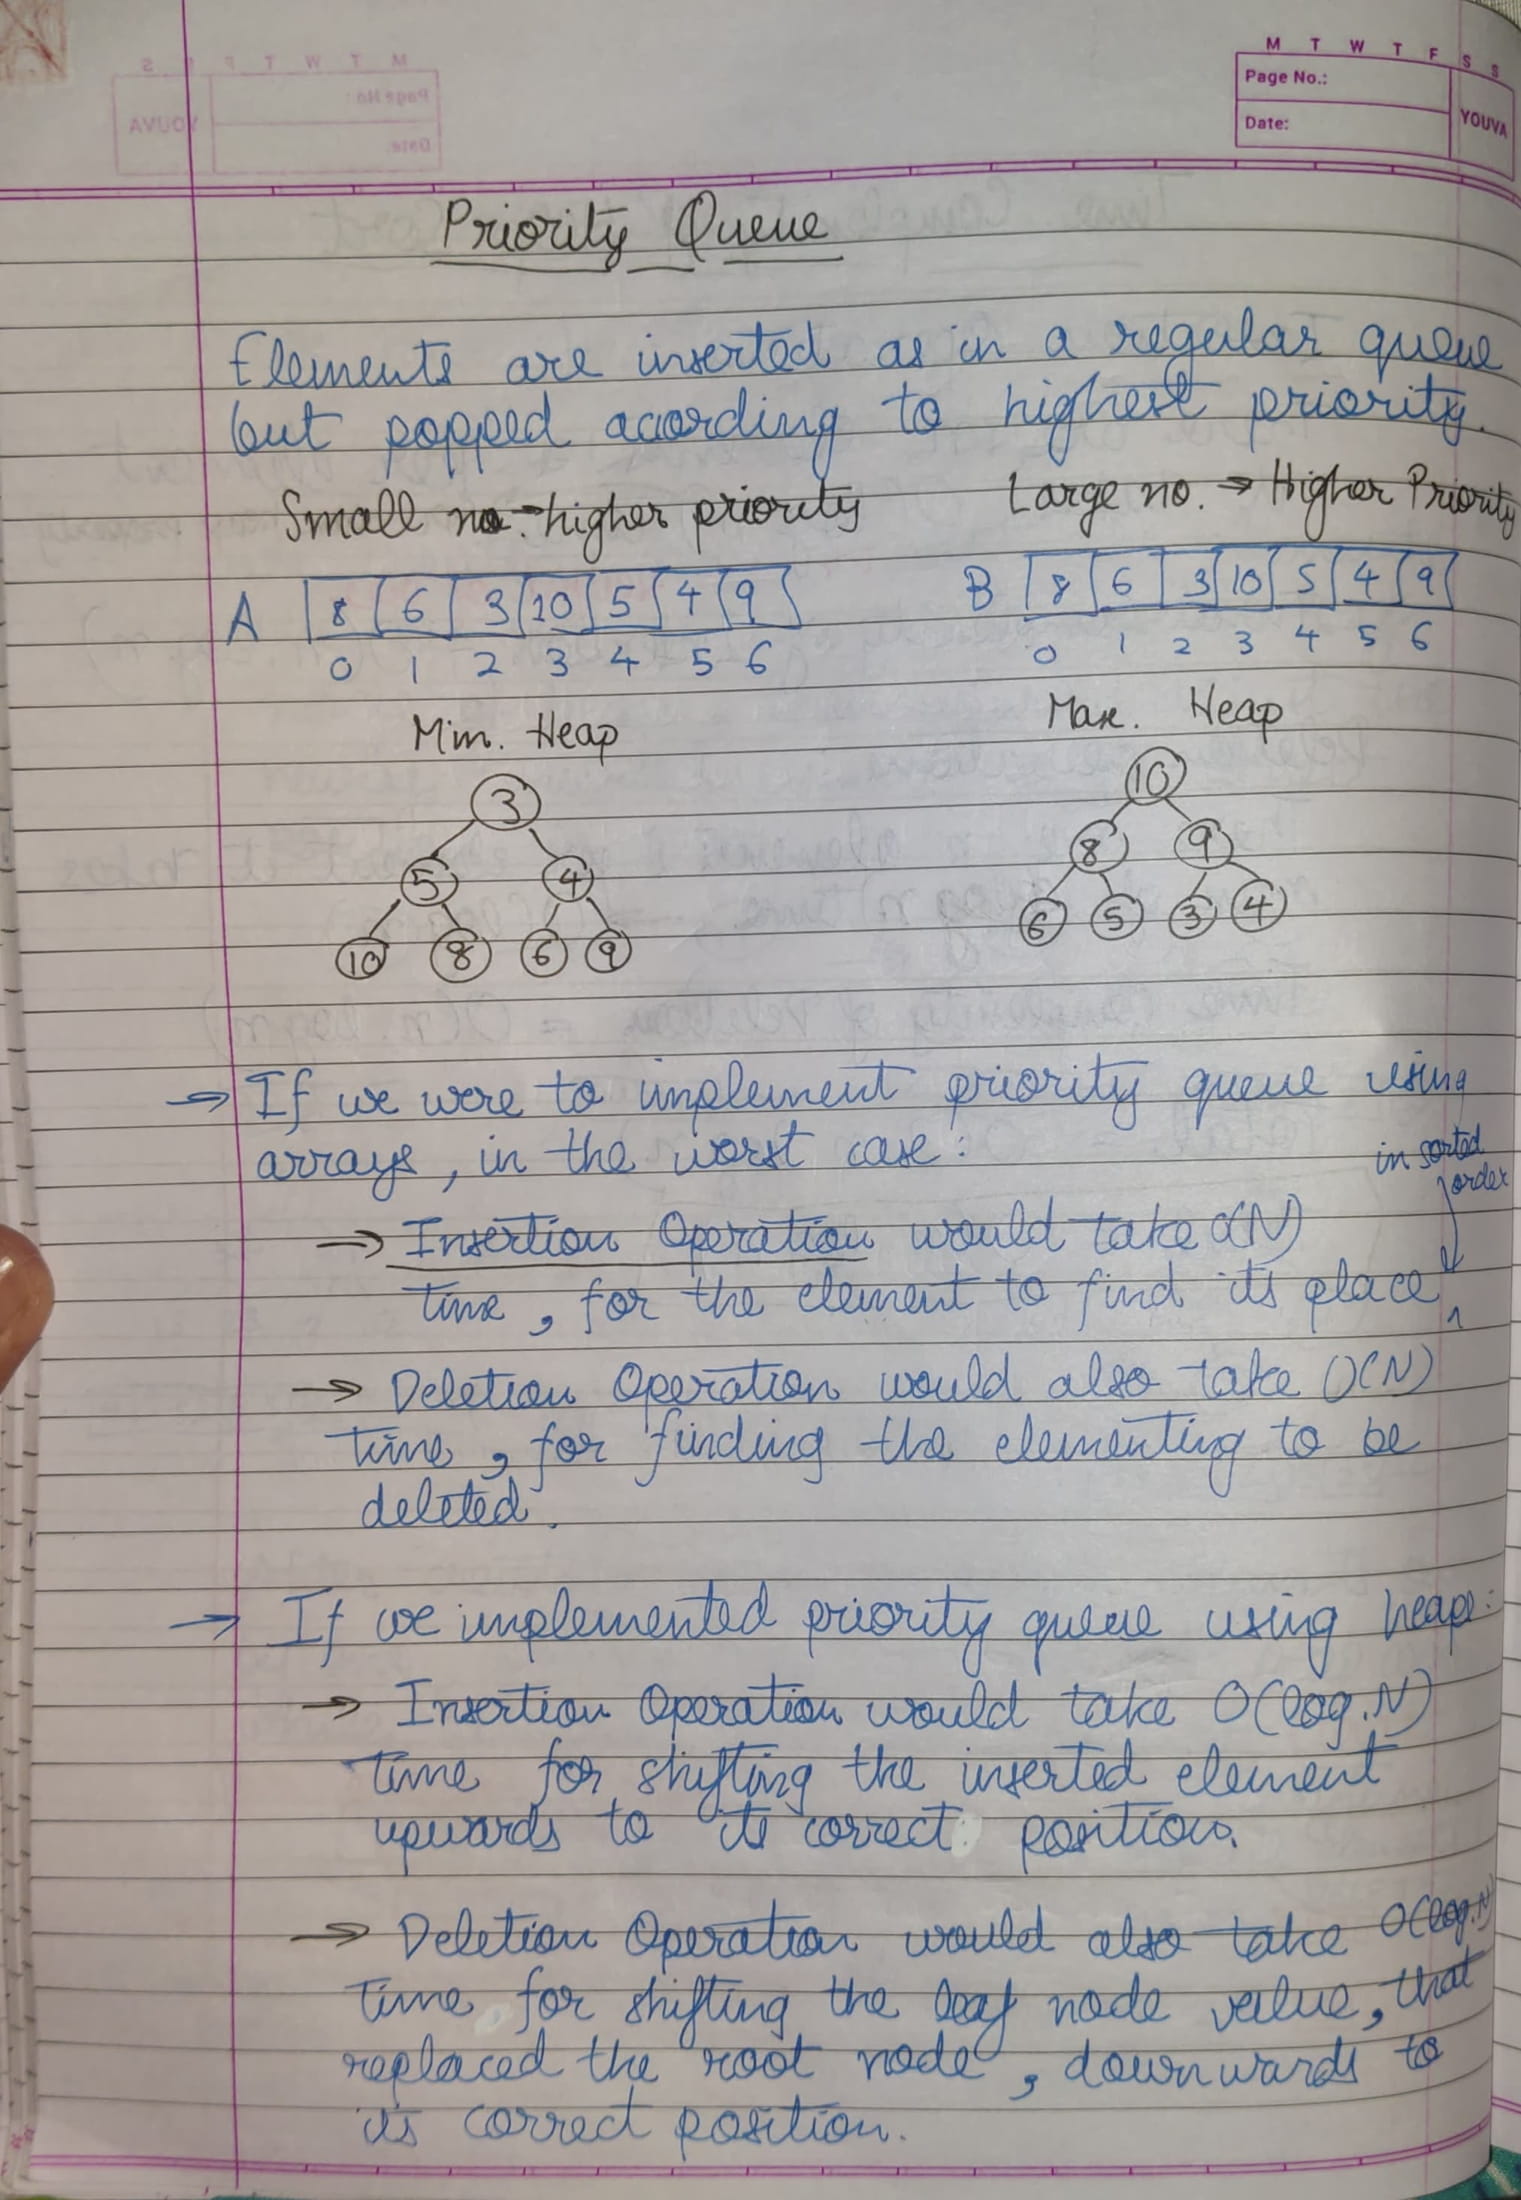 M T W T F S S
Page No.:
Date:
YOUVA
Priority Queue
Elements are inserted as in a regular queue
but popped acording to highest priority.
Small no. → higher priority
Large no. → Higher Priority
A 8 6 3 10 5 4 9
0 1 2 3 4 5 6
B 8 6 3 10 5 4 9
0 1 2 3 4 5 6
Min. Heap
3
5 4
10 8 6 9
Max. Heap
10
8 9
6 5 3 4
→ If we were to implement priority queue using
arrays, in the worst case:
→ Insertion Operation would take O(N)
time, for the element to find its place
in sorted
order
→ Deletion Operation would also take O(N)
time, for finding the elementing to be
deleted.
→ If we implemented priority queue using heaps:
→ Insertion Operation would take O(log.N)
time for shifting the inserted element
upwards to its correct position.
→ Deletion Operation would also take O(log.N)
time for shifting the leaf node value, that
replaced the root node, downwards to
its correct position.